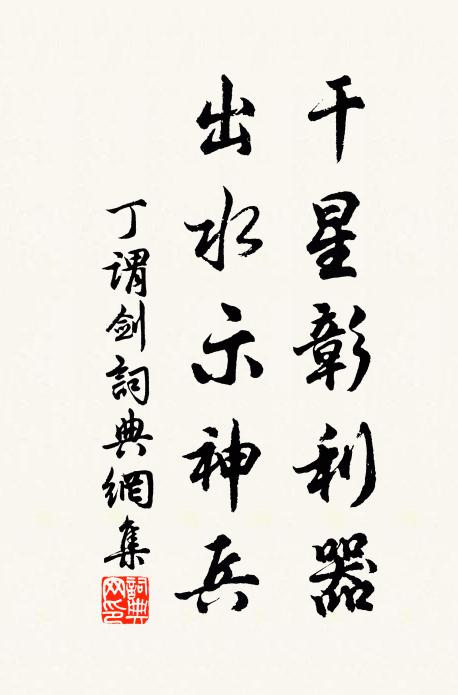 干星彰利器
出水示神兵
丁謂劍詞典網集
詞典
网印